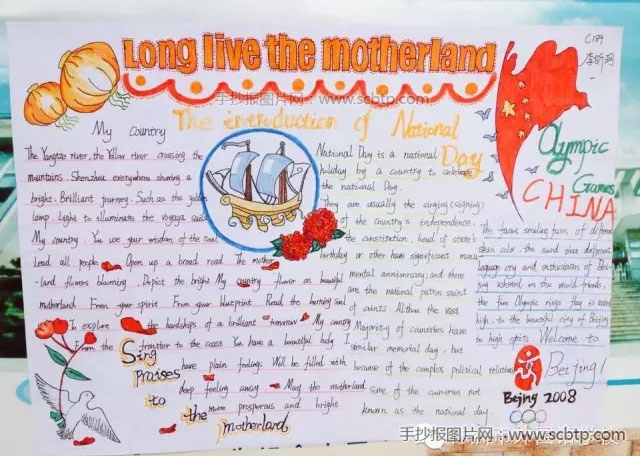 Long live the motherland
手抄报图片网:www.scbtp.com
C189
My Country
The introduction of National Day
The Yangtze river, the Yellow river crossing the
mountains. Shenzhou everywhere sharing a
bright. Brilliant journey. Such as the golden
lamp. Light to illuminate the voyage sails
My country. You use your wisdom of the soul
Lead all people. Open up a broad road. The mother
-land flowers blooming. Depict the bright My country flower as beautiful
motherland. From your spirit. From your blueprint. Read the burning soul
To explore the hardships of a brilliant tomorrow My country
From the frontier to the coast You have a beautiful holy I
have plain feelings Will be filled with
deep feeling away May the motherland
more prosperous and bright
Sing
praises
to
the
motherland
National Day is a national
holiday by a country to celebrate
the national Day.
They are usually the signing(signing)
of the country's independence.
the constitution, head of state's
birthday or other have significant
mental anniversary; and there
are the national patron saint
of saints Althou the vast
Majority of countries have
similar memorial day, but
because of the complex political relation
some of the countries not
known as the national day.
Olympic
Games
CHINA
The faces smiling faces of different
skin color, the sword plus different
language cry and enthusiasm of Bei-
jing ushered in the world friends,
the five Olympic rings flag is raised
high, to the beautiful city of Beijing
in high spirits. Welcome to
Beijing!
Beijing 2008
手抄报图片网:www.scbtp.com